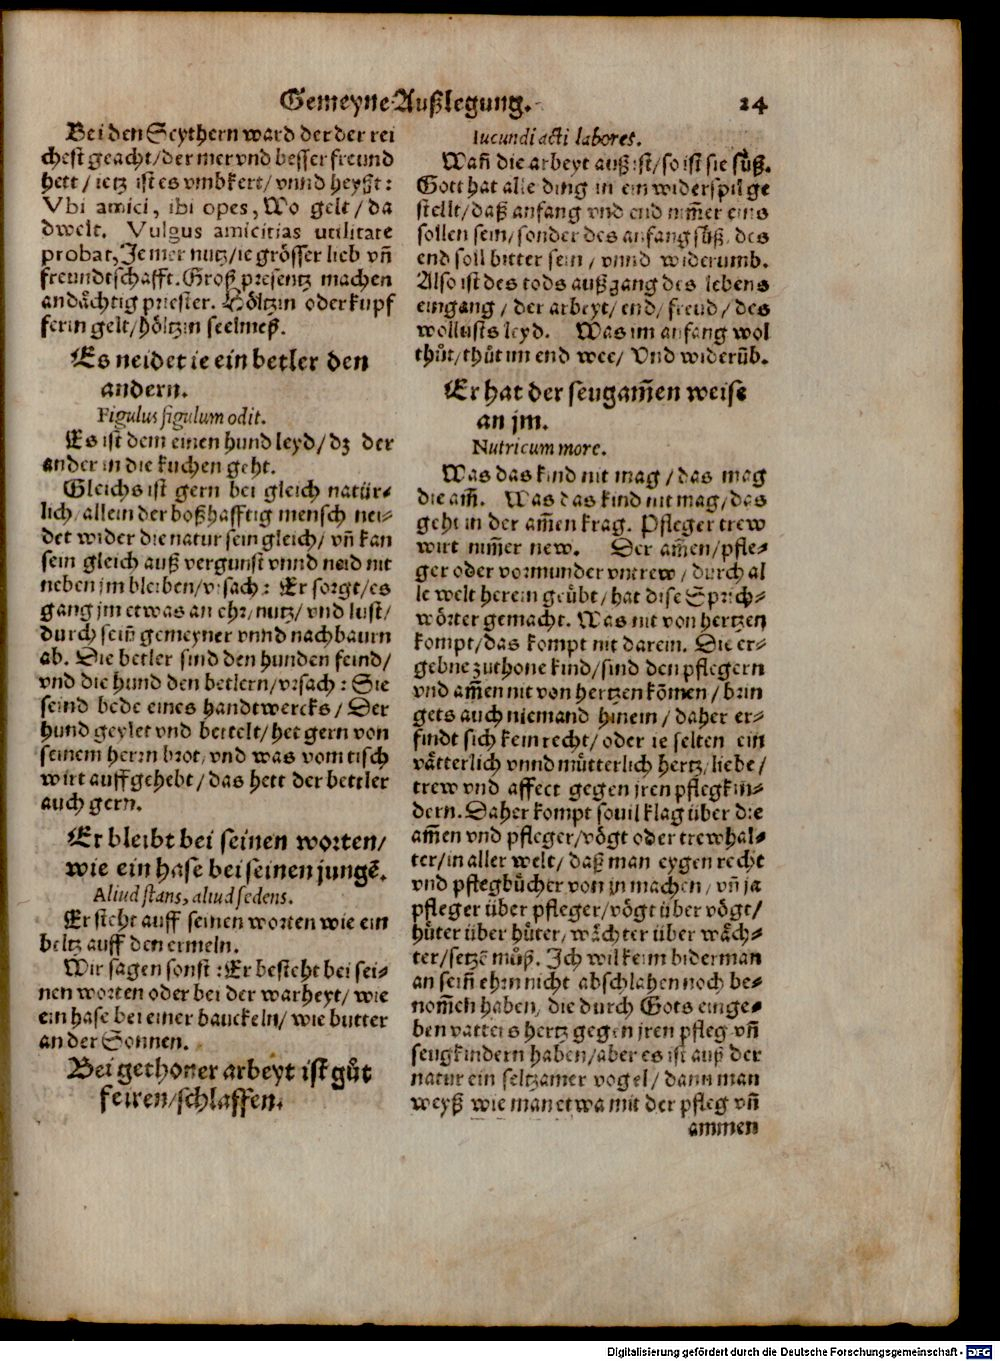 Gemeyne Außlegung. 24
Bei den Scythern ward der der rei
chest geacht/der mer vnd besser freund
hett/ietz ist es vmbkert/vnnd heyßt:
Vbi amici, ibi opes, Wo gelt/da
dwelt. Vulgus amicitias utilitate
probat, Je mer nutz/ie grösser lieb vn̄
freundtschafft. Groß presentz machen
andächtig priester. Höltzin oder kupf
ferin gelt/höltzin seelmeß.
Es neidet ie ein betler den
andern.
Figulus figulum odit.
Es ist dem einen hund leyd/dz der
ander in die kuchen geht.
Gleichs ist gern bei gleich natür⸗
lich/allein der boßhafftig mensch nei⸗
det wider die natur sein gleich/vn̄ kan
sein gleich auß vergunst vnnd neid nit
neben jm bleiben/vrsach: Er sorgt/es
gang jm etwas an ehr/nutz/vnd lust/
durch sein̄ gemeyner vnnd nachbaurn
ab. Die betler sind den hunden feind/
vnd die hund den betlern/vrsach: Sie
seind bede eines handtwercks/Der
hund geylet vnd bettelt/het gern von
seinem herrn brot/vnd was vom tisch
wirt auffgehebt/das hett der bettler
auch gern.
Er bleibt bei seinen worten/
wie ein hase bei seinen jungē.
Aliud stans, aliud sedens.
Er steht auff seinen worten wie ein
beltz auff den ermeln.
Wir sagen sonst: Er besteht bei sei⸗
nen worten oder bei der warheyt/wie
ein hase bei einer bauckeln/wie butter
an der Sonnen.
Bei gethoner arbeyt ist gůt
feiren/schlaffen.
Iucundi acti labores.
Wan̄ die arbeyt auß ist/so ist sie süß.
Gott hat alle ding in ein widerspil ge
stellt/daß anfang vnd end nim̄er eins
sollen sein/sonder des anfang süß/des
end soll bitter sein/vnnd widerumb.
Also ist des tods außgang des lebens
eingang/der arbeyt/end/freud/des
wollusts leyd. Was im anfang wol
thůt/thůt im end wee/Vnd widerūb.
Er hat der seugam̄en weise
an jm.
Nutricum more.
Was das kind nit mag/das mag
die am̄. Was das kind nit mag/das
geht in der am̄en krag. Pfleger trew
wirt nim̄er new. Der am̄en/pfle⸗
ger oder vormunder vntrew/durch al
le welt herein geübt/hat dise Sprich⸗
wörter gemacht. Was nit von hertzen
kompt/das kompt nit darein. Die er⸗
gebne zuthone kind/sind den pflegern
vnd am̄en nit von hertzen kōmen/brin
gets auch niemand hinein/daher er⸗
findt sich kein recht/oder ie selten ein
vätterlich vnnd mütterlich hertz/liebe/
trew vnd affect gegen jren pflegkin⸗
dern. Daher kompt souil klag über die
am̄en vnd pfleger/vögt oder trewhal⸗
ter/in aller welt/daß man eygen recht
vnd pflegbücher von jn machen/vn̄ ja
pfleger über pfleger/vögt über vögt/
hüter über hüter/wächter über wäch⸗
ter/setzē můß. Ich wil keim biderman
an sein̄ ehrn nicht abschlahen noch be⸗
nom̄en haben/die durch Gots einge⸗
ben vatters hertz gegen jren pfleg vn̄
seugkindern haben/aber es ist auß der
natur ein seltzamer vogel/dann man
weyß wie man etwa mit der pfleg vn̄
ammen
Digitalisierung gefördert durch die Deutsche Forschungsgemeinschaft - DFG